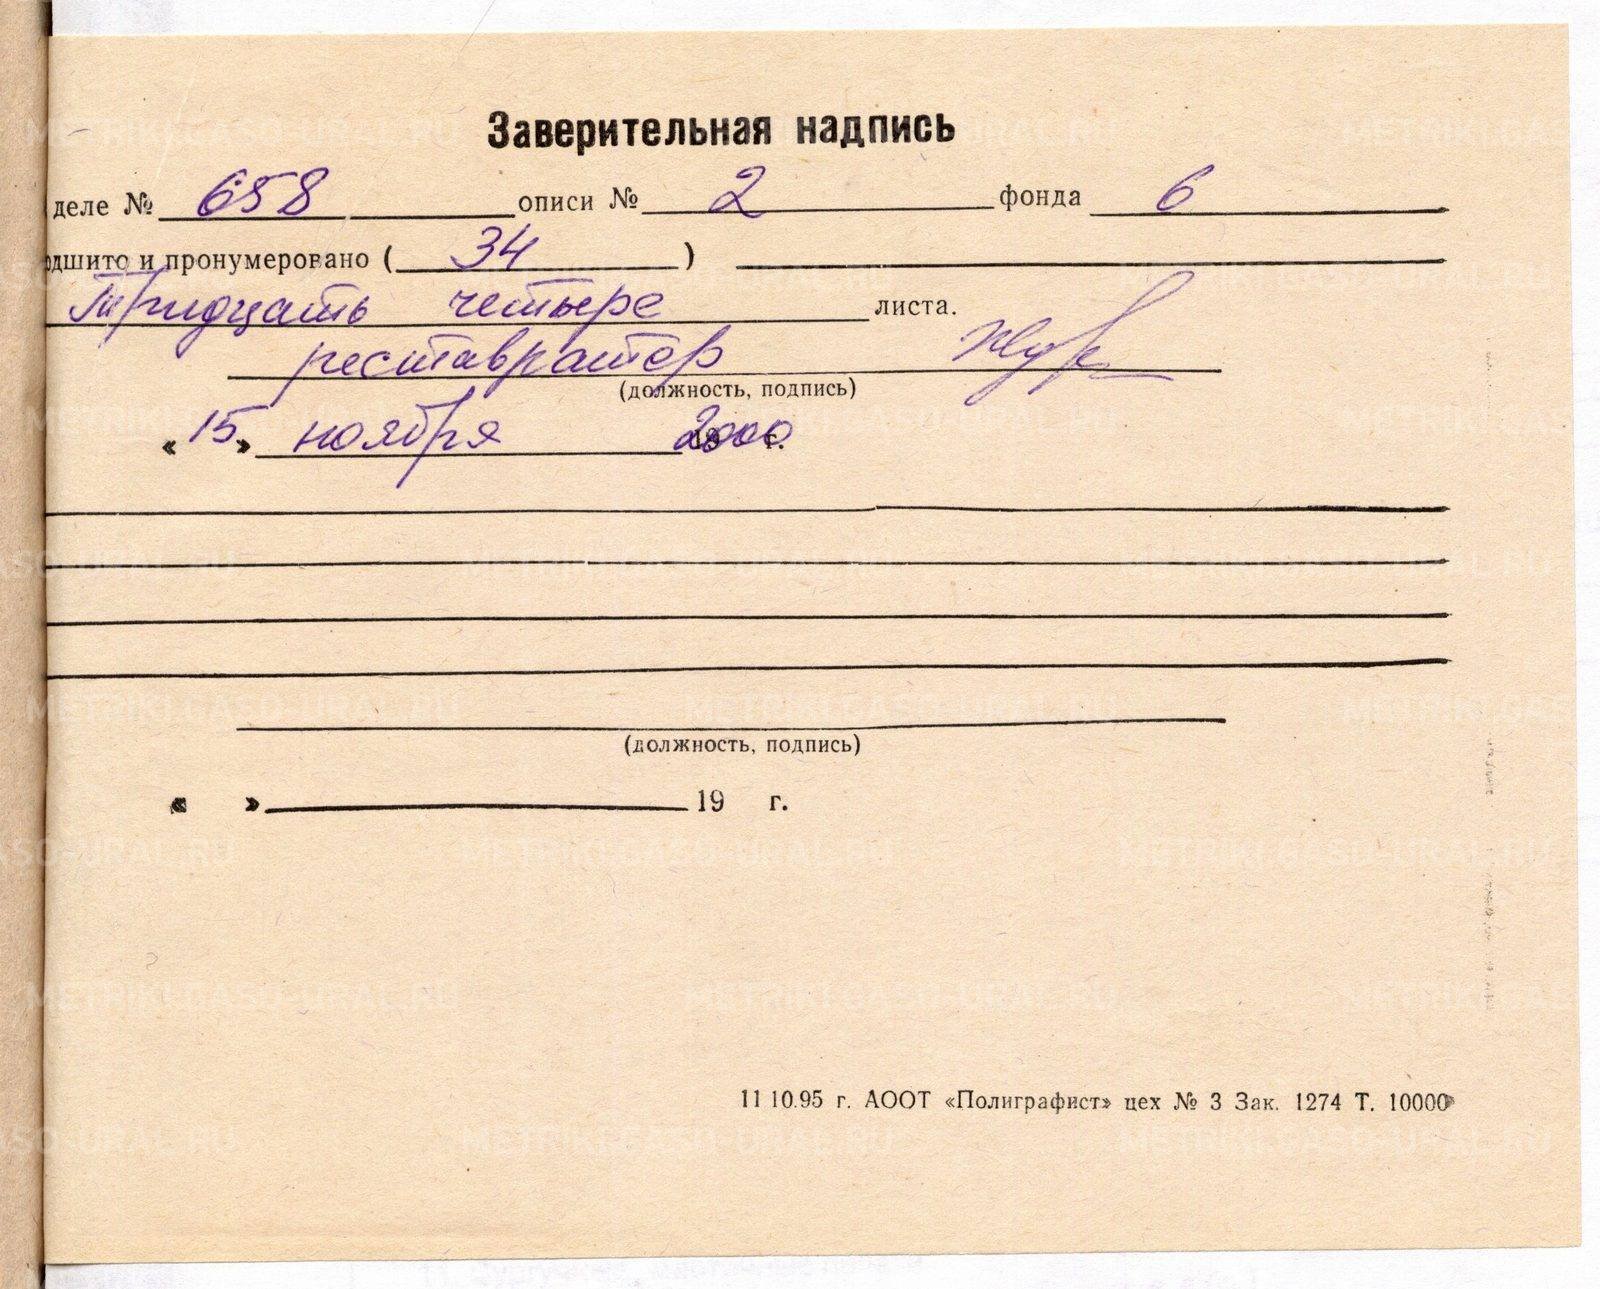 Заверительная надпись
деле № 658 описи № 2 фонда 6
одшито и пронумеровано ( 34 )
Тридцать четыре листа.
реставратор
(должность, подпись)
« 15 » ноября 2000 г.
(должность, подпись)
« » 19 г.
11 10.95 г. АООТ «Полиграфист» цех № 3 Зак. 1274 Т. 10000
METRIKI.GASO-URAL.RU